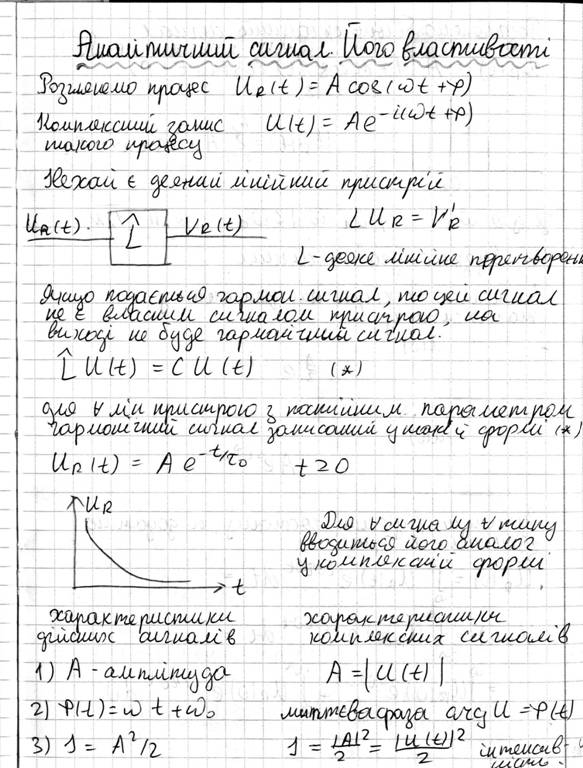 Аналітичний сигнал. Його властивості
Розглянемо процес U_R(t) = A cos(ωt + φ)
Комплексний запис U(t) = Ae^{-i(ωt + φ)}
такого процесу
Нехай є деякий лінійний пристрій
U_R(t) L̂ V_R(t) L U_R = V_R
L - деяке лінійне перетворен
Якщо подається гармон. сигнал, то цей сигнал
не є власним сигналом пристрою, на
виході не буде гармонічний сигнал.
L̂ U(t) = C U(t) (*)
для ∀ лін пристрою з постійним параметром
гармонічний сигнал записаний у такій формі (*)
U_R(t) = A e^{-t/τ₀} t ≥ 0
U_R
Для ∀ сигналу ∀ типу
вводиться його аналог
у комплексній формі.
t
характеристики характеристики
дійсних сигналів комплексних сигналів
1) A - амплітуда A = |U(t)|
2) φ(t) = ω t + ω₀ миттєва фаза arg U = φ(t)
3) J = A²/2 J = |A|²/2 = |U(t)|²/2 інтенсив-
ність.